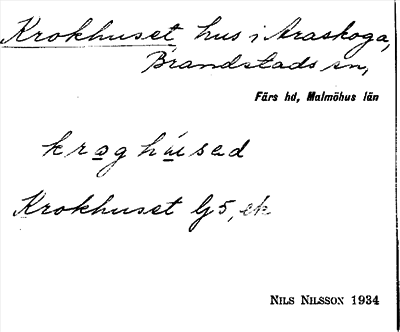 Krokhuset hus i Araskoga,
Brandstads sn,
Färs hd, Malmöhus län
Krokhuset G5, ek
NILS NILSSON 1934